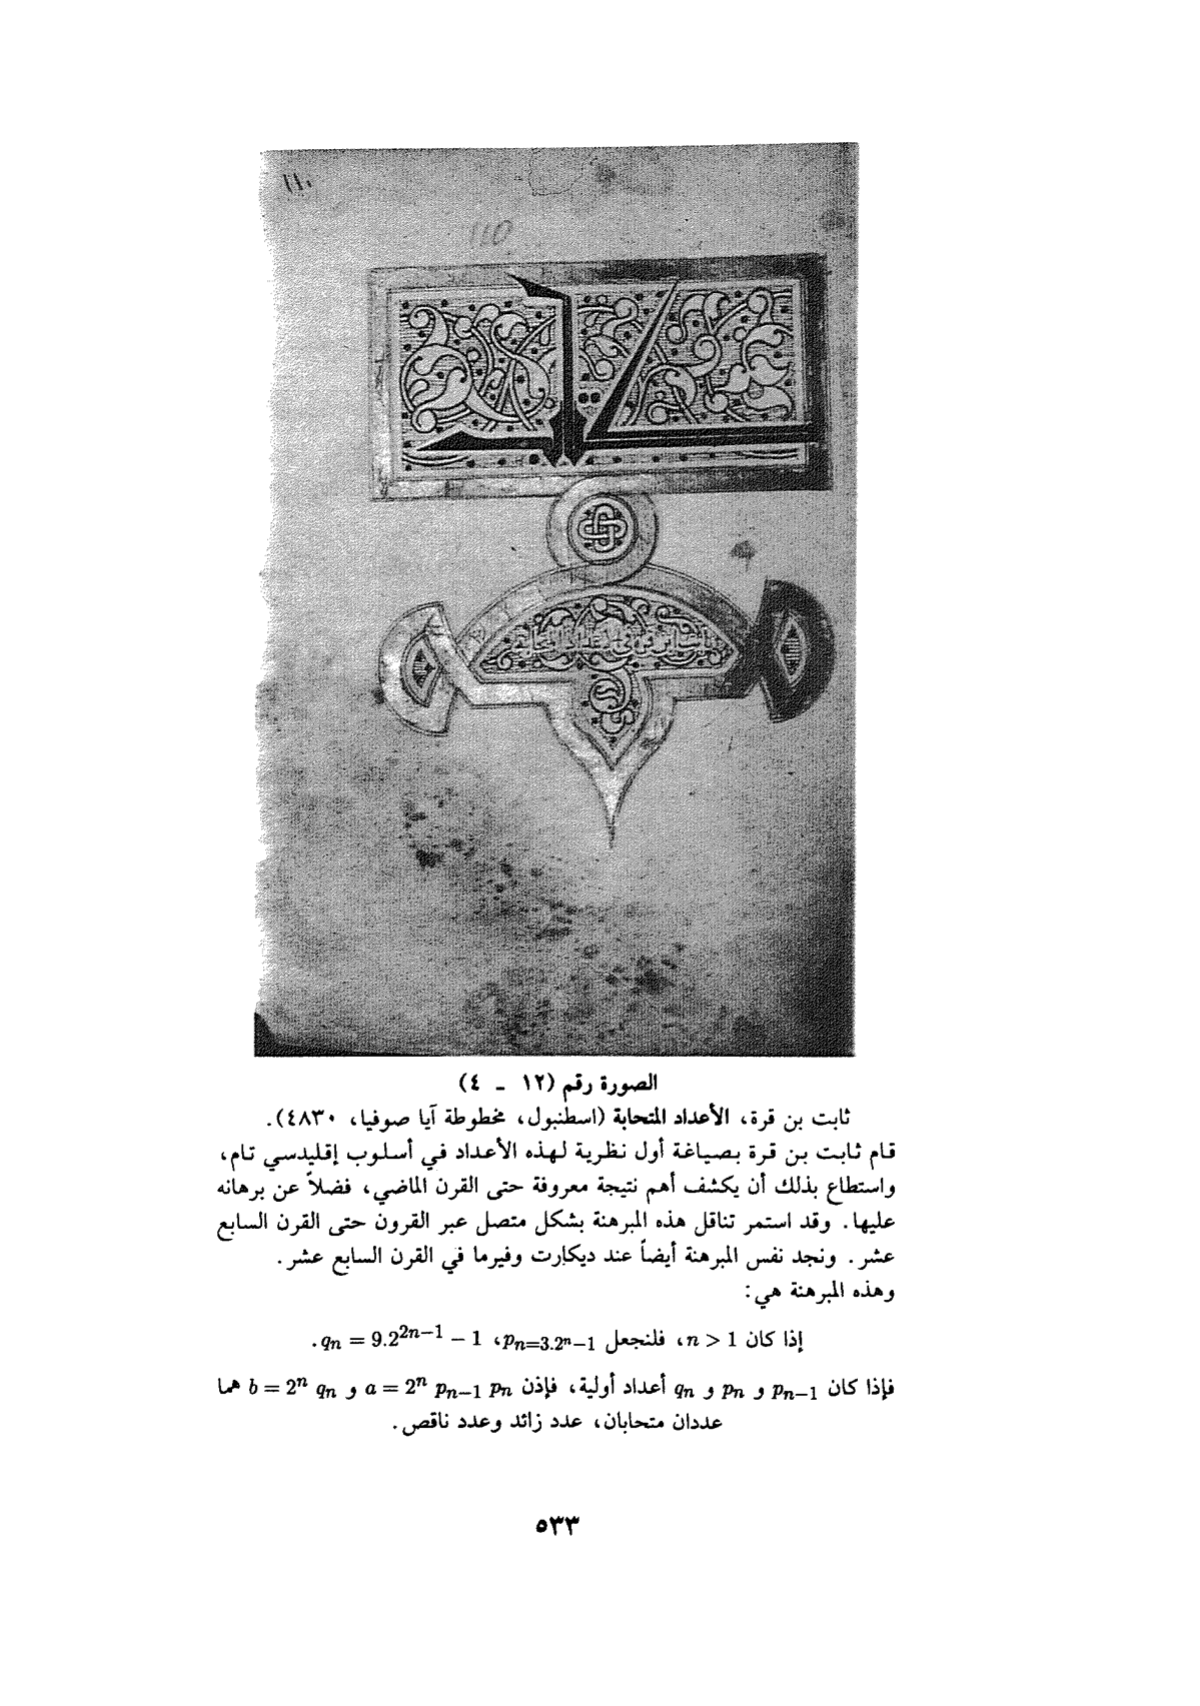 ١١٠
110
الصورة رقم (١٢ - ٤)
ثابت بن قرة، الأعداد المتحابة (اسطنبول، مخطوطة آيا صوفيا، ٤٨٣٠).
قام ثابت بن قرة بصياغة أول نظرية لهذه الأعداد في أسلوب إقليدسي تام،
واستطاع بذلك أن يكشف أهم نتيجة معروفة حتى القرن الماضي، فضلاً عن برهانه
عليها. وقد استمر تناقل هذه المبرهنة بشكل متصل عبر القرون حتى القرن السابع
عشر. ونجد نفس المبرهنة أيضاً عند ديكارت وفيرما في القرن السابع عشر.
وهذه المبرهنة هي:
إذا كان n > 1، فلنجعل pₙ=3.2ⁿ−1، qₙ = 9.2²ⁿ⁻¹ − 1.
فإذا كان pₙ₋₁ و pₙ و qₙ أعداد أولية، فإذن a = 2ⁿ pₙ₋₁ pₙ و b = 2ⁿ qₙ هما
عددان متحابان، عدد زائد وعدد ناقص.
٥٣٣